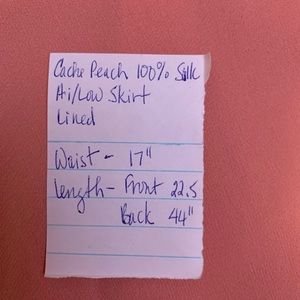 Cache Peach 100% Silk
Hi/Low Skirt
Lined
Waist - 17"
Length - Front 22.5
Back 44"